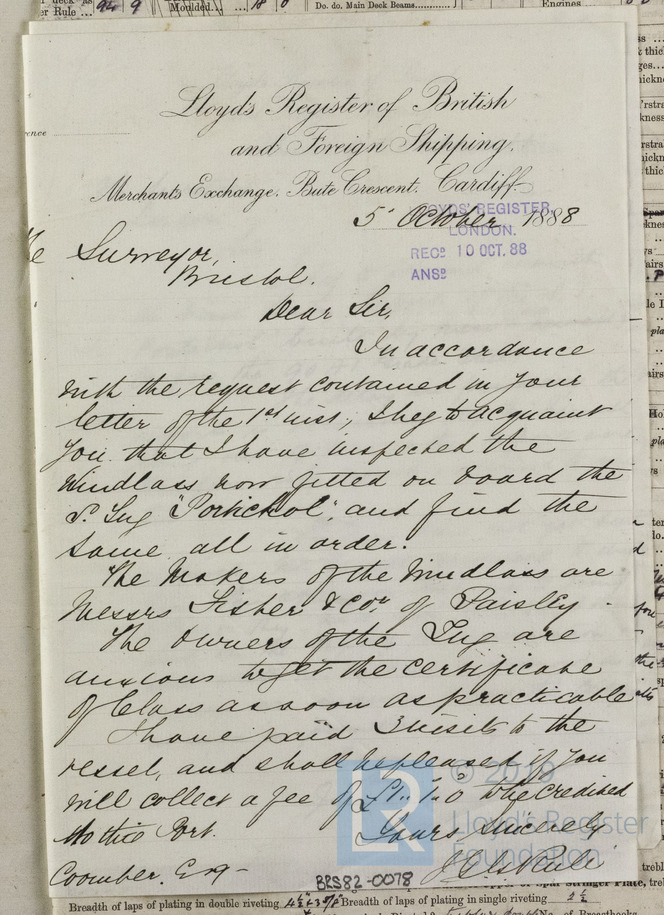 Moulded...
Do. do. Main Deck Beams............
Engines
er Rule
Lloyd's Register of British
and Foreign Shipping.
Merchants Exchange. Bute Crescent. Cardiff
5 October 1888
LLOYDS' REGISTER
LONDON.
RECD 10 OCT. 88
ANSD
Surveyor,
Bristol.
Dear Sir,
In accordance
with the request contained in your
letter of the 1st inst, I beg to acquaint
you that I have inspected the
Windlass now fitted on board the
S. Tug "Portichol", and find the
same all in order.
The Makers of the Windlass are
Messrs Fisher & Co. of Paisley.
The Owners of the Tug are
anxious to get the certificate
of Class as soon as practicable
I have paid 3 visits to the
vessel, and shall be pleased if you
will collect a fee of £1.. 1. 0 to be credited
to this Port.
Yours sincerely
Coomber. Esq
© 2019
Lloyd's Register
Foundation
BRS82-0078
Breadth of laps of plating in double riveting
Breadth of laps of plating in single riveting 2½